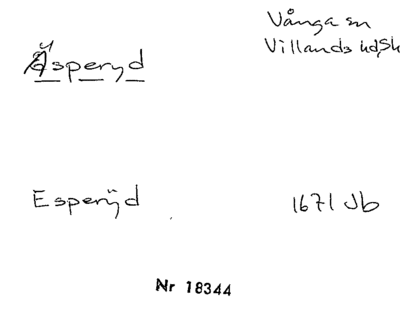 Äsperyd
Vånga sn
Villands hd, Sk
Esperÿd
1671 Jb
Nr 18344